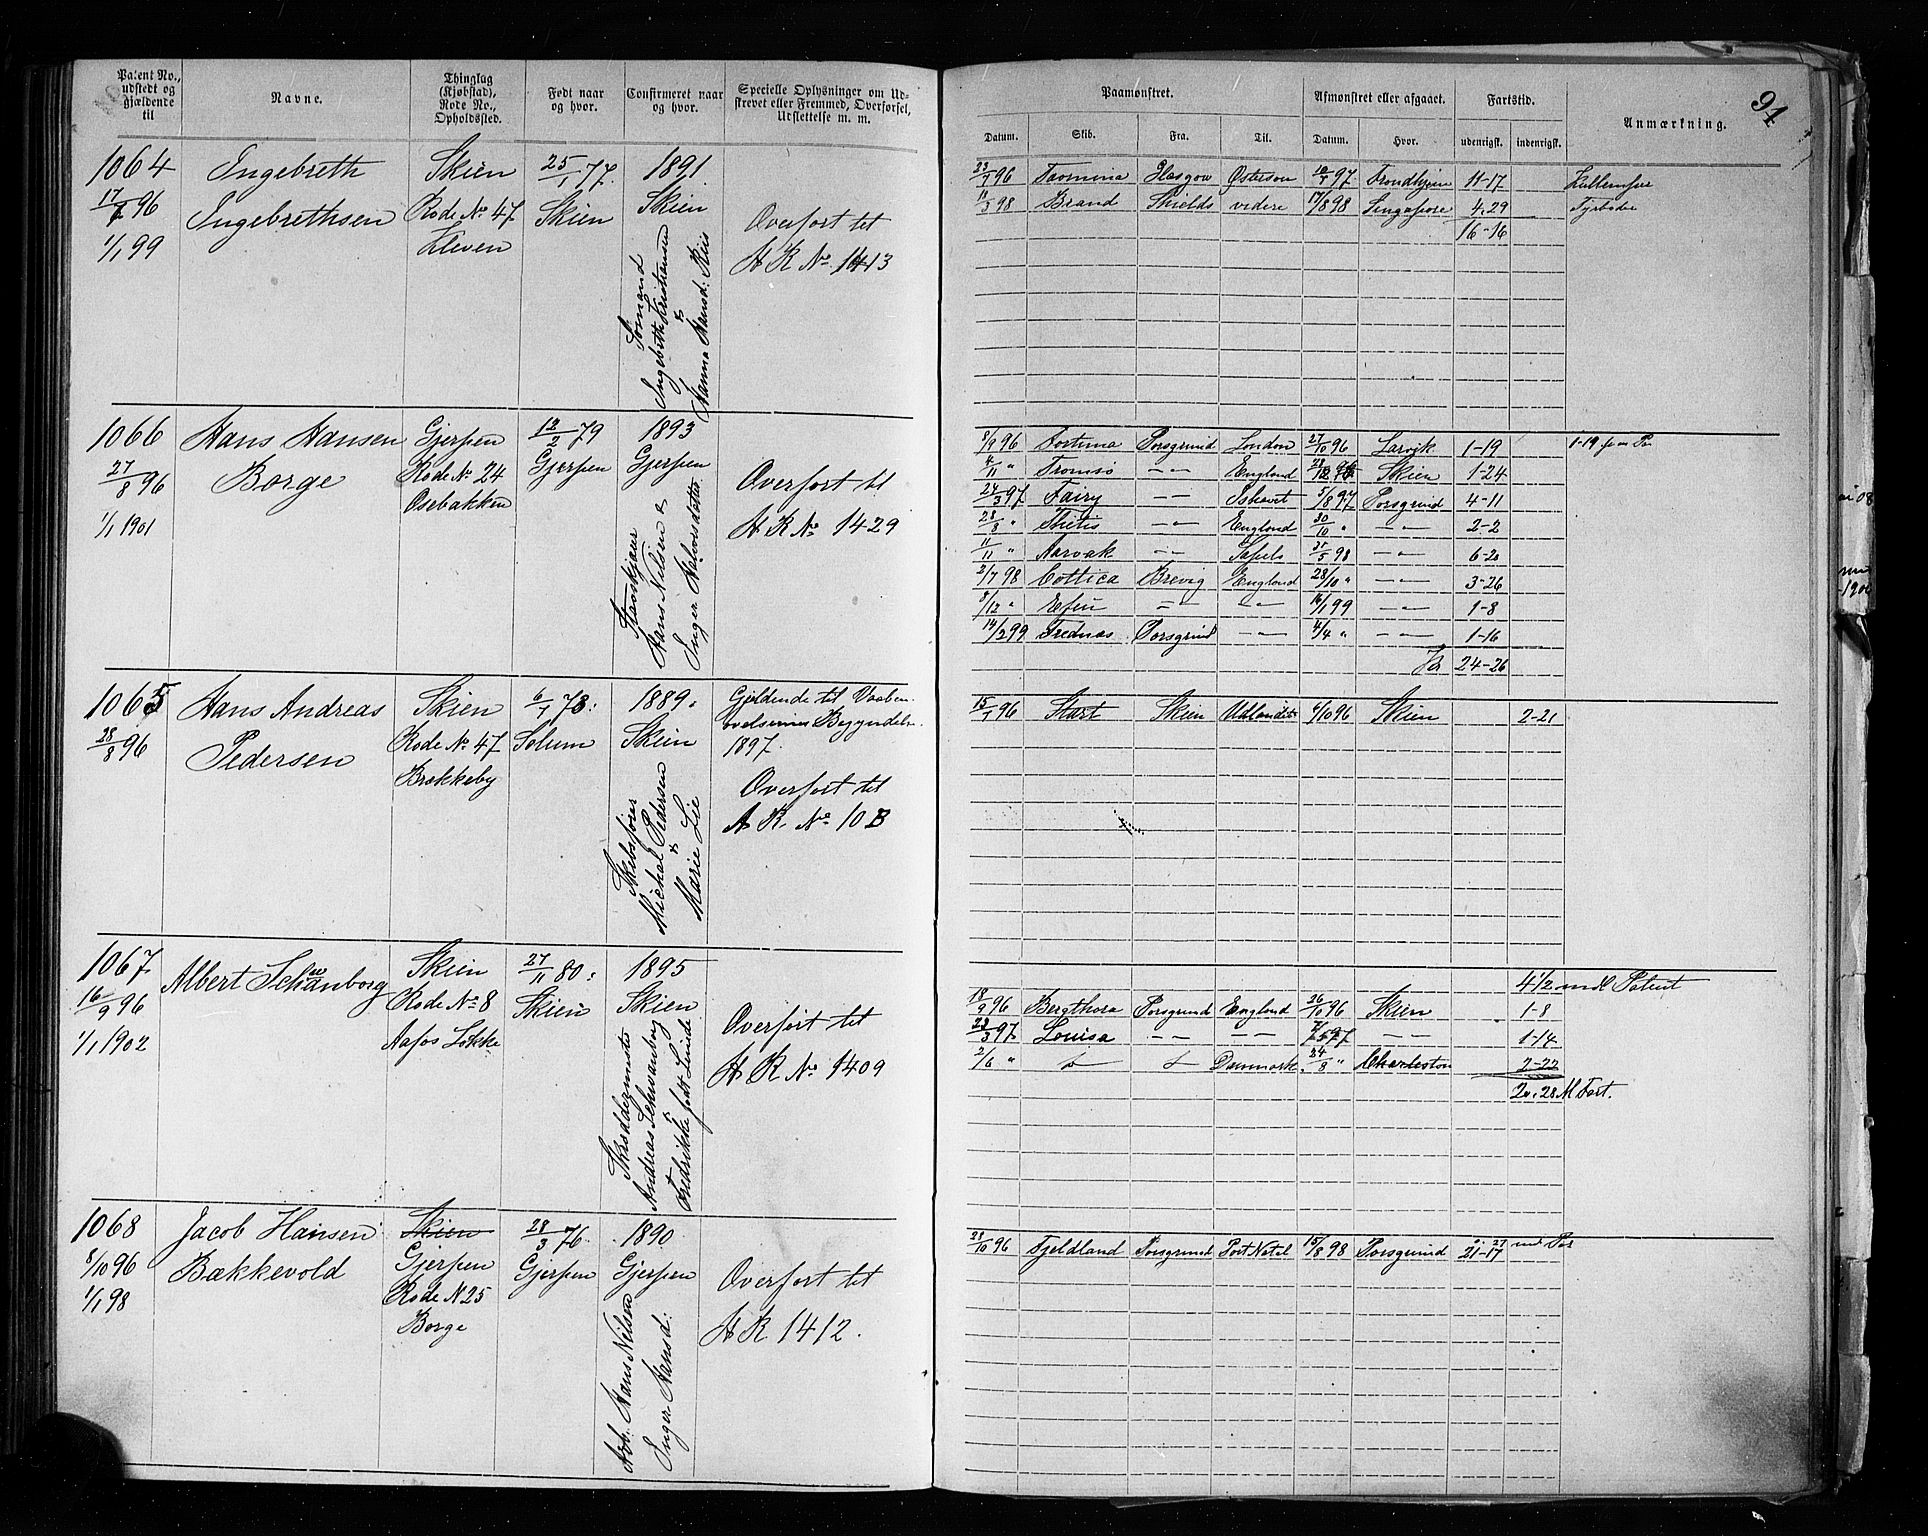 Patent No., udstedt og gjældende til
Navne.
Thinglag (Kjøbstad), Rode No., Opholdssted.
Født naar og hvor.
Confirmeret naar og hvor.
Specielle Oplysninger om Udskrevet eller Fremmed, Overførsel, Udslettelse m. m.
Paamønstret.
Afmønstret eller afgaaet.
Fartstid.
Anmærkning.
91
Datum.
Skib.
Fra.
Til.
Datum.
Hvor.
udenrigsk.
indenrigsk.
1064
17/7 96
1/1 99
Ingebreth
Ingebrethsen
Skien
Rode No 47
Kleven
25/1 77.
Skien
1891
Skien
Sømand
Ingebreth Kristiansen
&
Hanna Hansd. Riis
Overført til
A R No 1413
23/7 96 Taormina Glasgow Østersøn 97 Trondhjem 11-17
11/3 98 Brand Shields videre 17/8 98 Singapore 4.29 Fyrbøder
16-16
1066
27/8 96
1/1 1901
Hans Hansen
Borge
Gjerpen
Rode No 24
Osebakken
12/2 79
Gjerpen
1893
Gjerpen
Hans Nilsen &
Inger Halvorsdatter
Overført til
A R No 1429
8/9 96 Fortuna Porsgrund London 27/10 96 Larvik 1-19
4/11 " Tromsø —"— England Skien 1-24
24/3 97 Fairy —"— 5/8 97 Porsgrund 4-11
28/8 " Thetis —"— England 30/10 " —"— 2-2
11/11 " Narvak —"— 98 —"— 6-20
2/7 98 Cottica Brevig England 28/10 " —"— 3-26
8/12 " —"— —"— 16/1 99 —"— 1-8
14/2 99 Frednæs Porsgrund —"— 4/4 " —"— 1-16
24-26
1065
28/8 96
Hans Andreas
Pedersen
Skien
Rode No 47
Brekkeby
6/1 78.
Solum
1889.
Skien
Skibsfører
Michal Pedersen
&
Marie Lie
Gjeldende til Vaaben-
øvelsernes Begyndelse
1897.
Overført til
A R. No 10 B
15/1 96 Start Skien Udlandet 96 Skien 2-21
1067.
16/9 96
1/1 1902
Albert Schanborg
Skien
Rode No 8
Aafos Løkke
27/11 80.
Skien
1895
Skien
Skræddermester
Andreas Schwanborg
Fredrikke født Linde
Overført til
A R No 1409
4 1/2 md Patent
18/9 96 Bergthora Porsgrund England 26/10 96 Skien 1-8
23/3 97. Louisa —"— —"— —"— 1-14
2/6 " Danmark 24/8 " Charleston 2-22
M Fart.
1068
8/10 96
1/1 98
Jacob Hansen
Bækkevold
Skien
Gjerpen
Rode N 25
Borge
28/3 76.
Gjerpen
1890
Gjerpen
Arb. Hans Nilsen
Inger Hansd.
Overført til
A R 1412.
28/10 96 Fjeldland Porsgrund Port Natal 15/8 98 Porsgrund 21-17